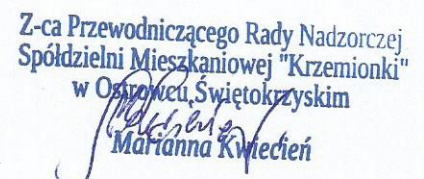 Z-ca Przewodniczącego Rady Nadzorczej
Spółdzielni Mieszkaniowej "Krzemionki"
w Ostrowcu Świętokrzyskim
Marianna Kwiecień